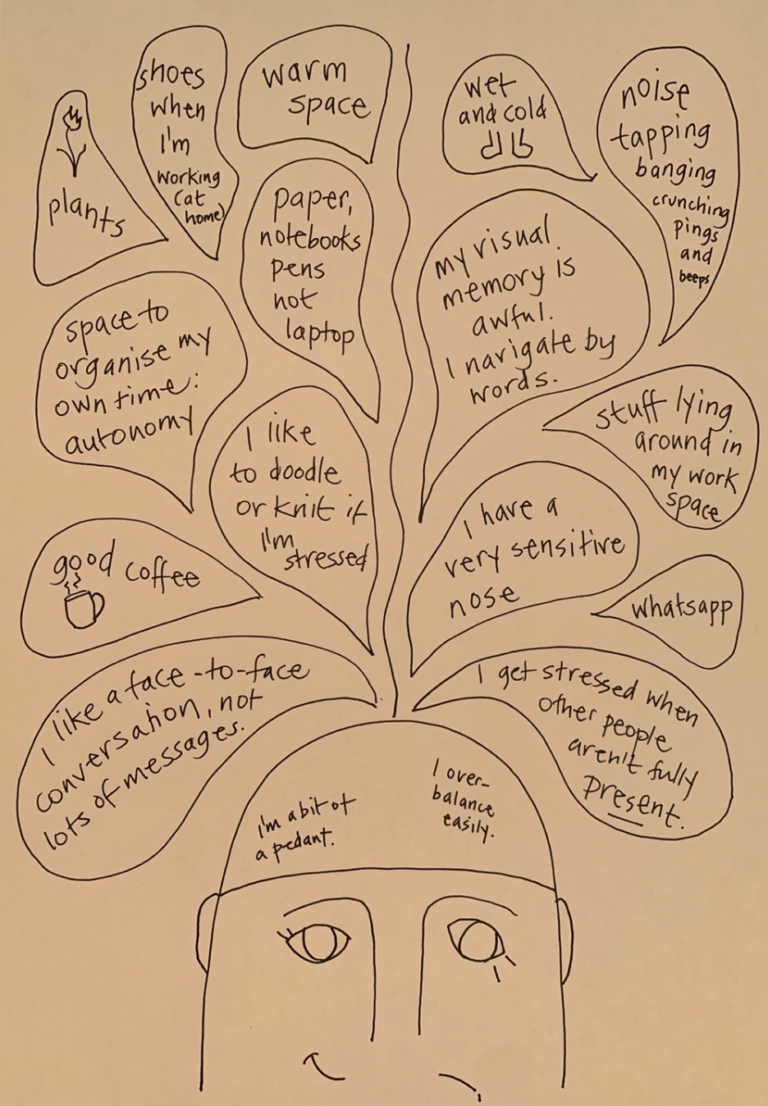 plants
shoes
when
I'm
working
(at
home)
warm
space
paper,
notebooks
pens
not
laptop
space to
organise my
own time:
autonomy
I like
to doodle
or knit if
I'm
stressed
good coffee
I like a face-to-face
conversation, not
lots of messages.
wet
and cold
noise
tapping
banging
crunching
pings
and
beeps
my visual
memory is
awful.
I navigate by
words.
stuff lying
around in
my work
space
I have a
very sensitive
nose
whatsapp
I get stressed when
other people
aren't fully
present.
I'm a bit of
a pedant.
I over-
balance
easily.